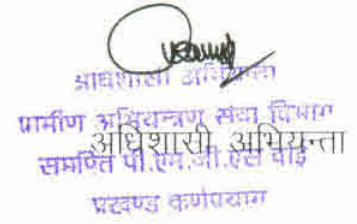 अधिशासी अभियन्ता
ग्रामीण अभियन्त्रण सेवा विभाग
अधिशासी अभियन्ता
समर्पित पी.एम.जी.एस वाई
प्रखण्ड कर्णप्रयाग